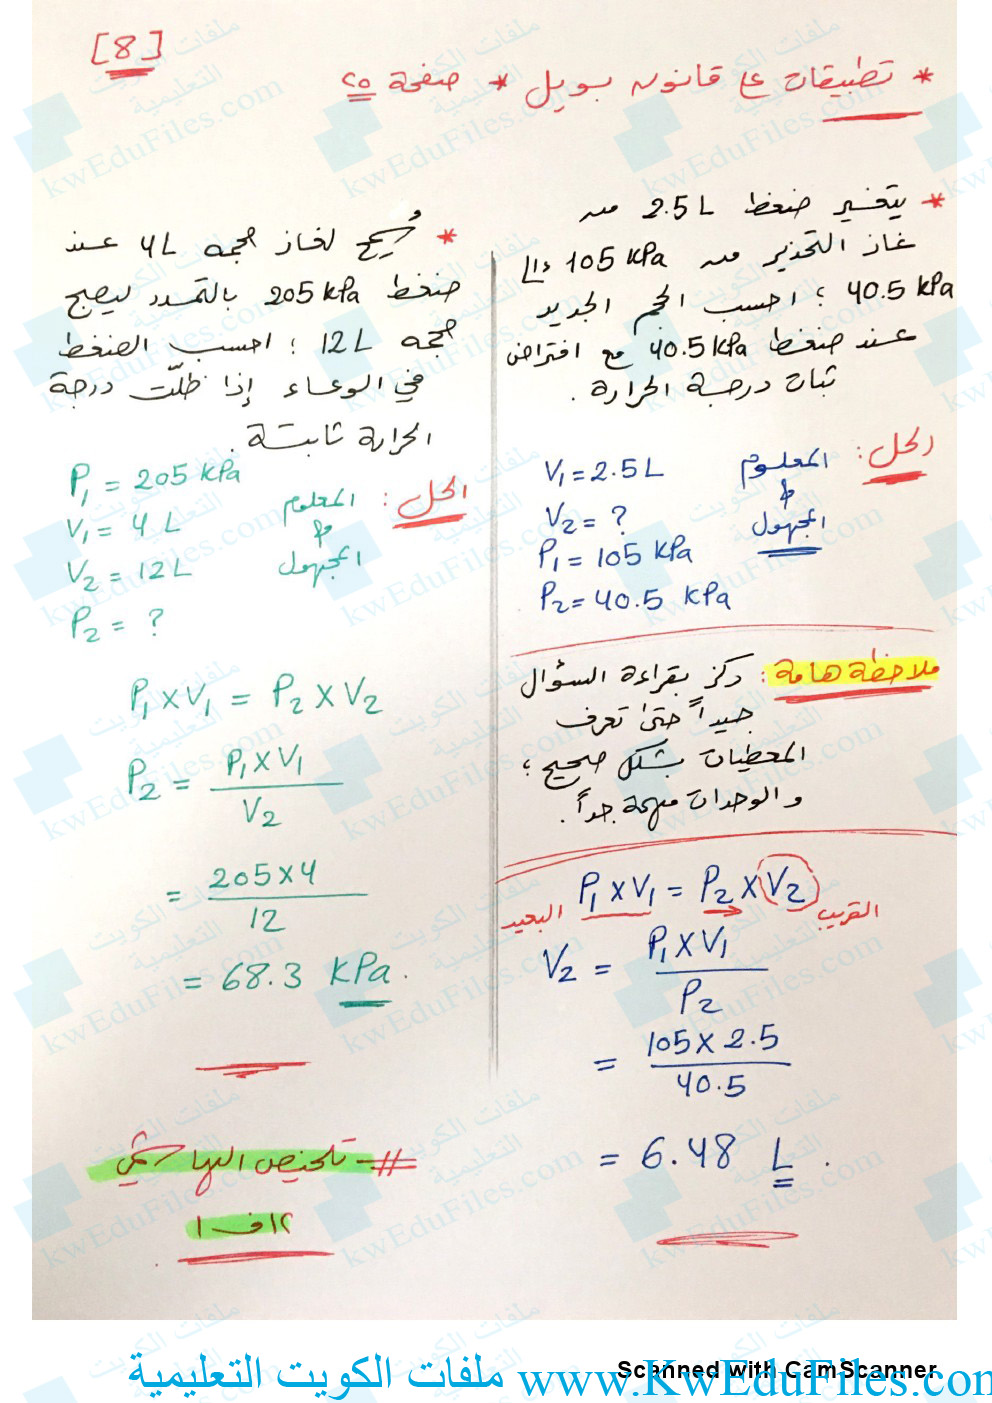 [8]
* تطبيقات على قانون بويل * صفحة ٢٥
* يتغير ضغط 2.5 L من
غاز التخدير من 105 kPa إلى
40.5 kPa ؛ احسب الحجم الجديد
عند ضغط 40.5 kPa مع افتراض
ثبات درجة الحرارة .
الحل :
المعلوم
و
المجهول
V₁ = 2.5 L
V₂ = ?
P₁ = 105 kPa
P₂ = 40.5 kPa
ملاحظة هامة : ركز بقراءة السؤال
جيداً حتى تعرف
المعطيات بشكل صحيح ؛
و الوحدات مهمة جداً .
P₁ x V₁ = P₂ x V₂
البعيد
القريب
V₂ = P₁ x V₁ / P₂
= 105 x 2.5 / 40.5
= 6.48 L .
* سُمح لغاز حجمه 4 L عند
ضغط 205 kPa بالتمدد ليصبح
حجمه 12 L ؛ احسب الضغط
في الوعاء إذا ظلّت درجة
الحرارة ثابتة .
الحل :
المعلوم
و
المجهول
P₁ = 205 kPa
V₁ = 4 L
V₂ = 12 L
P₂ = ?
P₁ x V₁ = P₂ x V₂
P₂ = P₁ x V₁ / V₂
= 205 x 4 / 12
= 68.3 kPa .
# تلخيص الهاشمي
١٢ ف ١
Scanned with CamScanner
ملفات الكويت التعليمية www.KwEduFiles.com
ملفات الكويت
التعليمية
kwEduFiles.com